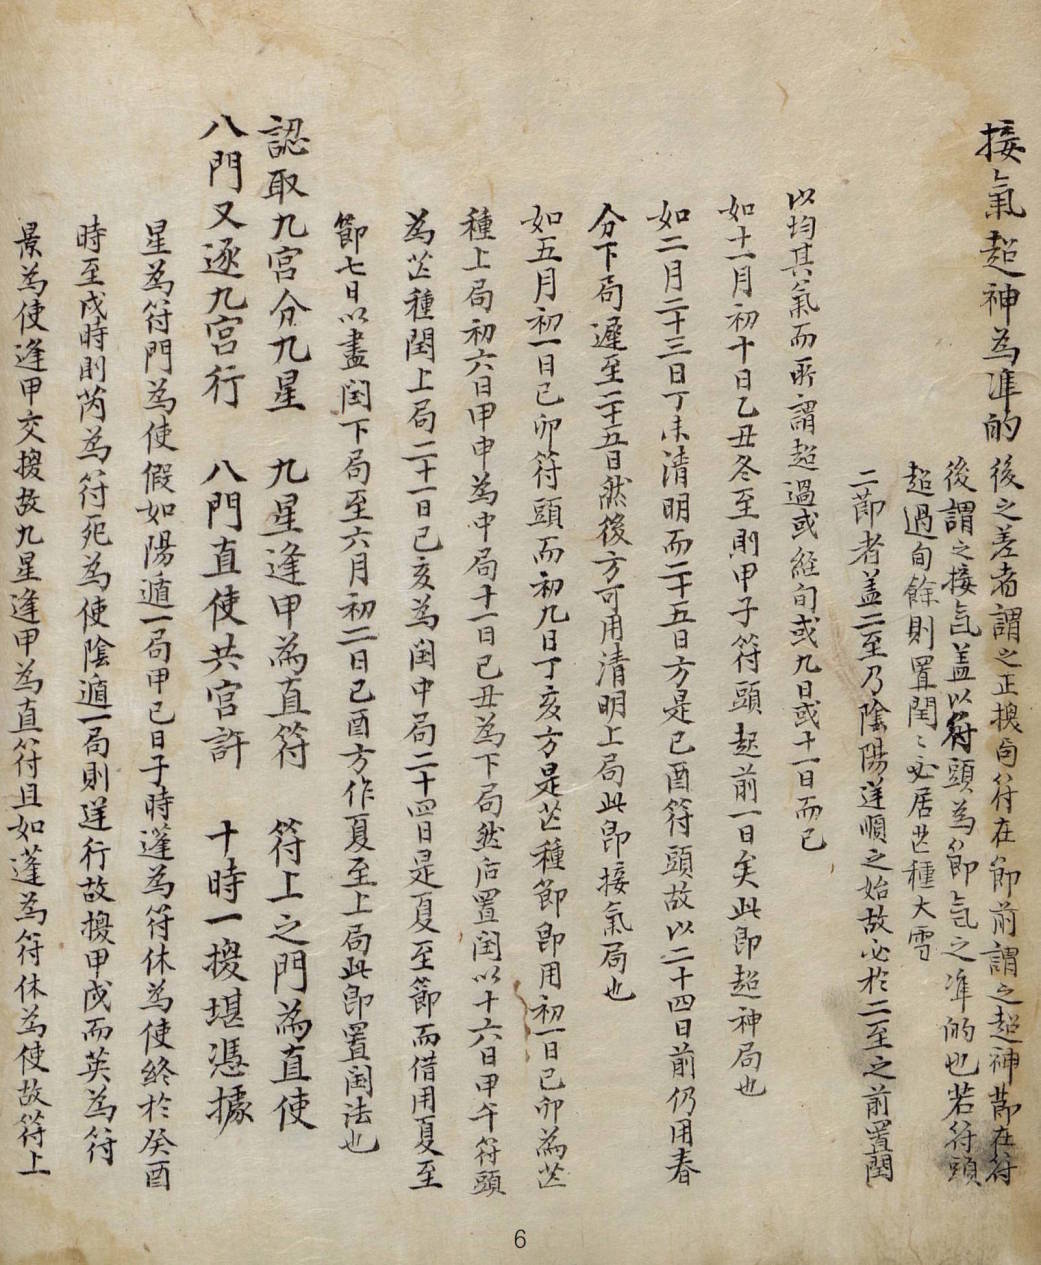 接氣超神為準的 後之差者謂之正換局符在節前謂之超神節在符
後謂之接氣盖以符頭為節氣之準的也若符頭
超過旬餘則置閏〻必居芒種大雪
二節者盖二至乃陰陽逆順之始故必於二至之前置閏
以均其氣而所謂超過或經旬或九日或十一日而已
如十一月初十日乙丑冬至則甲子符頭起前一日矣此即超神局也
如二月二十三日丁未清明而二十五日方是己酉符頭故以二十四日前仍用春
分下局遲至二十五日然後方可用清明上局此即接氣局也
如五月初一日己卯符頭而初九日丁亥方是芒種節即用初一日己卯為芒
種上局初六日甲申為中局十一日己丑為下局然后置閏以十六日甲午符頭
為芒種閏上局二十一日己亥為閏中局二十四日是夏至節而借用夏至
節七日以盡閏下局至六月初二日己酉方作夏至上局此即置閏法也
認取九宮分九星 九星逢甲為直符 符上之門為直使
八門又逐九宮行 八門直使共宮許 十時一換堪憑據
星為符門為使假如陽遁一局甲己日子時蓬為符休為使終於癸酉
時至戌時則芮為符死為使陰遁一局則逆行故換甲戌而英為符
景為使逢甲交換故九星逢甲為直符且如蓬為符休為使故符上
6